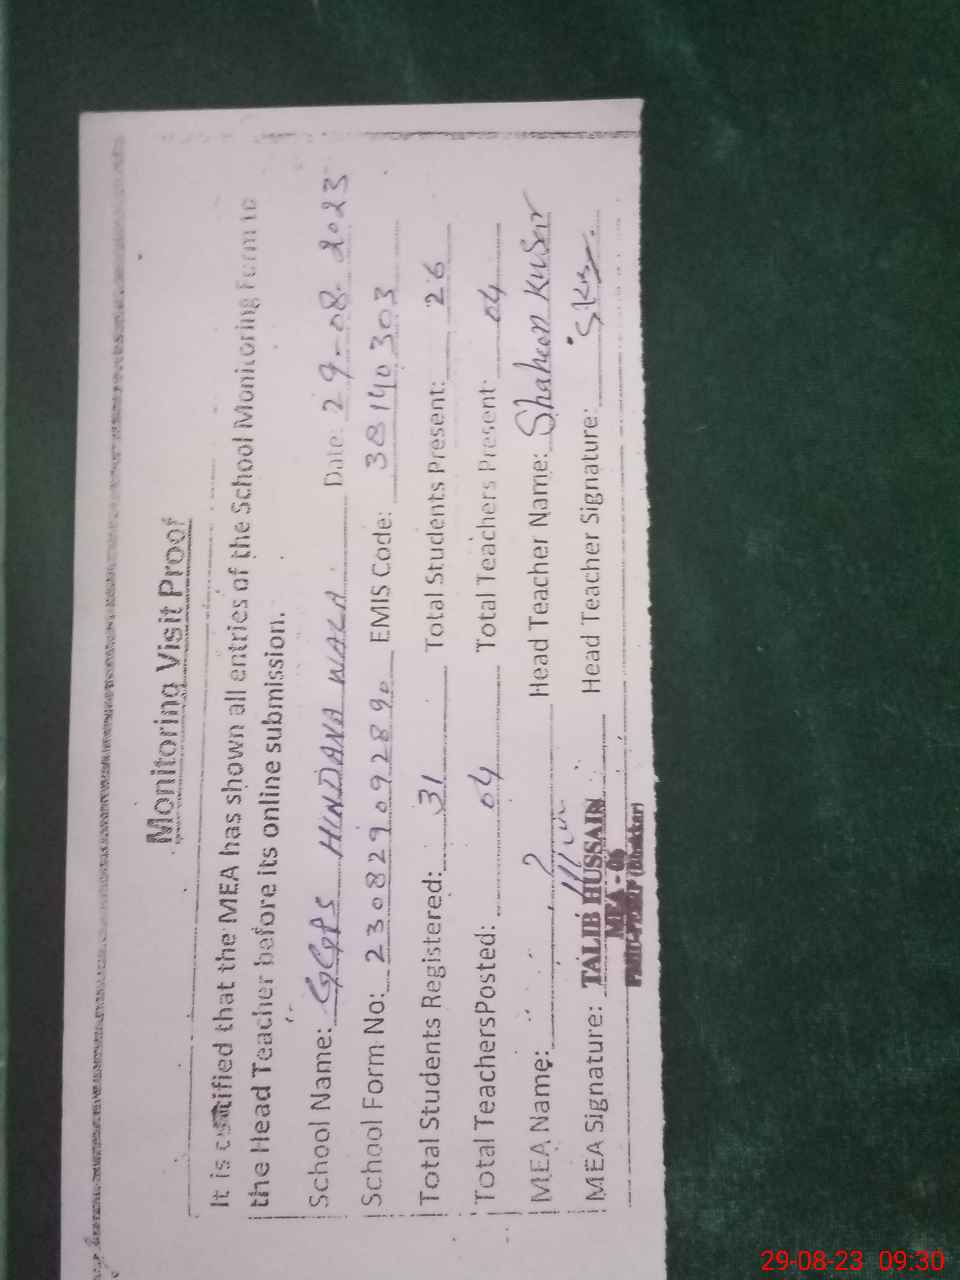 Monitoring Visit Proof
It is certified that the MEA has shown all entries of the School Monitoring Form to
the Head Teacher before its online submission.
School Name: GGPS HINDANA WALA Date: 29-08-2023
School Form No: 23082909289 EMIS Code: 38140303
Total Students Registered: 31 Total Students Present: 26
Total TeachersPosted: 04 Total Teachers Present: 04
MEA Name: Head Teacher Name: Shaheen Kusar
MEA Signature: TALIB HUSSAIN Head Teacher Signature:
MEA - 06
(Bhakkar)
29-08-23 09:30